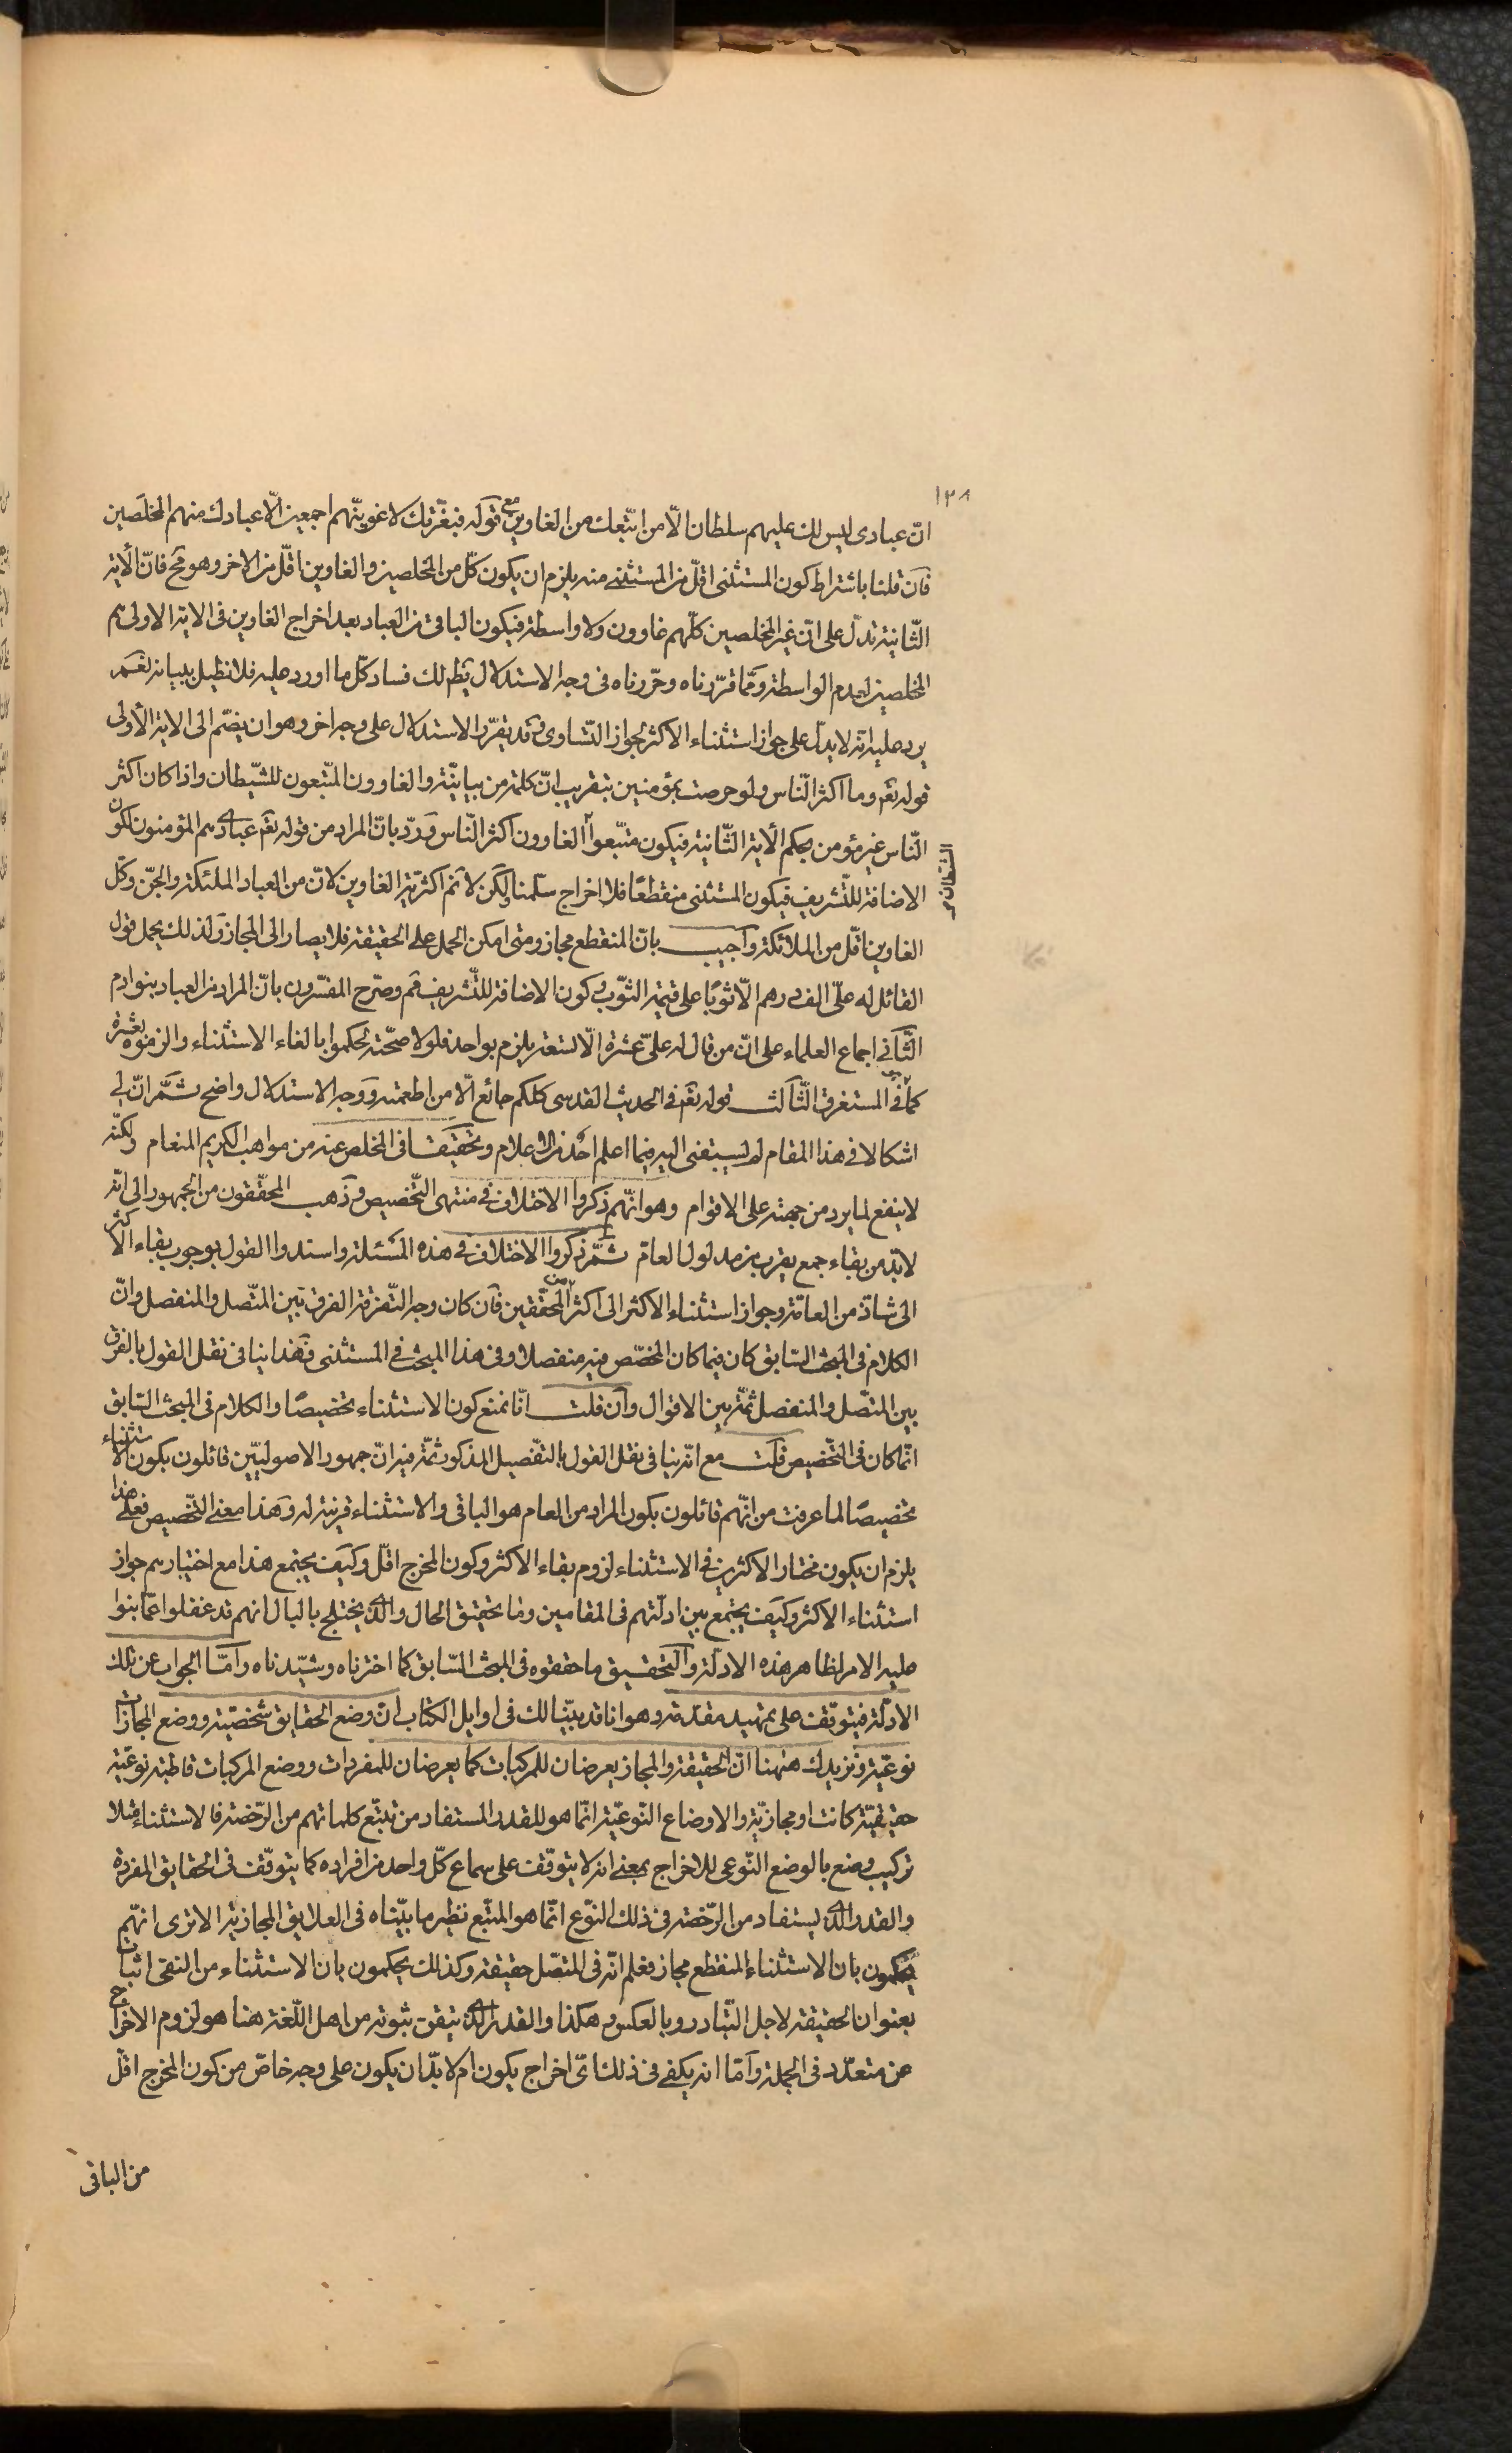 ١٢٨
انّ عبادى ليس لك عليهم سلطان الّا من اتّبعك من الغاوين مع قوله فبعزّتك لاغوينّهم اجمعين الّا عبادك منهم المخلَصين
فان قلنا باشتراط كون المستثنى اقلّ من المستثنى منه يلزم ان يكون كلّ من المخلصين والغاوين اقلّ من الاخر وهو مح فانّ الأية
الثّانية تدلّ على انّ غير المخلصين كلّهم غاوون ولا واسطة فيكون الباقى من العباد بعد اخراج الغاوين فى الاية الاولى هم
المخلصين لعدم الواسطة وممّا قرّرناه وحرّرناه فى وجه الاستدلال يظهر لك فساد كلّ ما اورد عليه فلا نطيل ببيانه نعم
يرد عليه انّه لا يدلّ على جواز استثناء الاكثر لجواز التّساوى وقد يقرّر الاستدلال على وجه اخر وهو ان يضمّ الى الاية الأولى
قوله تعم وما اكثر النّاس ولو حرصت بمؤمنين بتقريب انّ كلمة من بيانيّة والغاوون المتّبعون للشّيطان واذا كان اكثر
النّاس غير مؤمن بحكم الأية الثّانية فيكون متّبعوا الغاوون اكثر النّاس وردّ بانّ المراد من قوله تعم عبادى هم المؤمنون لكون
الشيطان
الاضافة للتّشريف فيكون المستثنى منقطعًا فلا اخراج سلّمنا ولكن لا نم اكثريّة الغاوين لانّ من العباد الملئكة والجنّ وكلّ
الغاوين اقلّ من الملائكة واجيب بانّ المنقطع مجاز ومتى امكن الحمل على الحقيقة فلا يصار الى المجاز ولذلك يحمل قول
القائل له علىّ الف درهم الّا ثوبًا على قيمة الثّوب وكون الاضافة للتّشريف مم وصرّح المفسّرون بانّ المراد من العباد بنو ادم
الثّانى اجماع العلماء على انّ من قال له علىّ عشرة الّا تسعة يلزم بواحد فلولا صحّته لحكموا بالغاء الاستثناء والزموه بعشرة
كما فى المستغرق الثّالث قوله تعم فى الحديث القدسى كلكم جائع الّا من اطعمته ووجه الاستدلال واضح ثمّ انّ لى
اشكالا فى هذا المقام لم يسبقنى اليه فيما اعلم احد من الاعلام وتحقيقا فى المخلص عنه من مواهب الكريم المنعام ولكنّه
لا ينفع لما يرد من جهته على الاقوام وهو انّهم ذكروا الاختلاف فى منتهى التّخصيص وذهب المحقّقون من الجمهور الى انّه
لابدّ من بقاء جمع يقرب من مدلول العامّ ثمّ ذكروا الاختلاف فى هذه المسئلة واسندوا القول بوجوب بقاء الاكثر
الى شاذّ من العامّة وجواز استثناء الاكثر الى اكثر المحقّقين فان كان وجه التّفرقة الفرق بين المتّصل والمنفصل وانّ
الكلام فى المبحث السّابق كان فيما كان المخصّص فيه منفصلا وفى هذا المبحث فى المستثنى فهذا ينافى نقل القول بالفرق
بين المتّصل والمنفصل ثمّة بين الاقوال وان قلت انّا نمنع كون الاستثناء تخصيصًا والكلام فى المبحث السّابق
انّما كان فى التّخصيص قلت مع انّه ينافى نقل القول بالتّفصيل المذكور ثمّة فيه انّ جمهور الاصوليّين قائلون بكون الاستثناء
تخصيصًا لما عرفت من انّهم قائلون بكون المراد من العام هو الباقى والاستثناء قرينة له وهذا معنى التّخصيص فعلى هذا
يلزم ان يكون مختار الاكثرين فى الاستثناء لزوم بقاء الاكثر وكون المخرج اقلّ وكيف يجتمع هذا مع اختيارهم جواز
استثناء الاكثر وكيف يجتمع بين ادلّتهم فى المقامين وما تحقيق الحال والّذى يختلج بالبال انهم قد غفلوا عمّا بنوا
عليه الامر لظاهر هذه الادلّة والتّحقيق ما حققوه فى المبحث السّابق كما اخترناه وشيّدناه وامّا الجواب عن تلك
الادلّة فيتوقّف على تمهيد مقدّمة وهو انا قد بيّنّا لك فى اوايل الكتاب انّ وضع الحقايق شخصيّة ووضع المجازات
نوعيّة ونزيدك ههنا انّ الحقيقة والمجاز يعرضان للمركبات كما يعرضان للمفردات ووضع المركبات قاطبة نوعيّة
حقيقيّة كانت او مجازيّة والاوضاع النّوعيّة انّما هو للقدر المستفاد من تتبّع كلماتهم من الرّخصة فالاستثناء مثلا
تركيب وضع بالوضع النّوعى للاخراج بمعنى انه لا يتوقّف على سماع كلّ واحد من افراده كما يتوقّف فى الحقايق المفردة
والقدر الّذى يستفاد من الرّخصة فى ذلك النّوع انّما هو المتّبع نظير ما بيّنّاه فى العلايق المجازية الا ترى انهّم
يحكمون بان الاستثناء المنقطع مجاز فعلم انّه فى المتصّل حقيقة وكذلك يحكمون بان الاستثناء من النفى اثبات
بعنوان الحقيقة لاجل التّبادر وبالعكس وهكذا والقدر الّذى تيقن ثبوته من اهل اللّغة هنا هو لزوم الاخراج
عن متعدّد فى الجملة وامّا انه يكفى فى ذلك اىّ اخراج يكون ام لابدّ ان يكون على وجه خاصّ من كون المخرج اقلّ
من الباقى